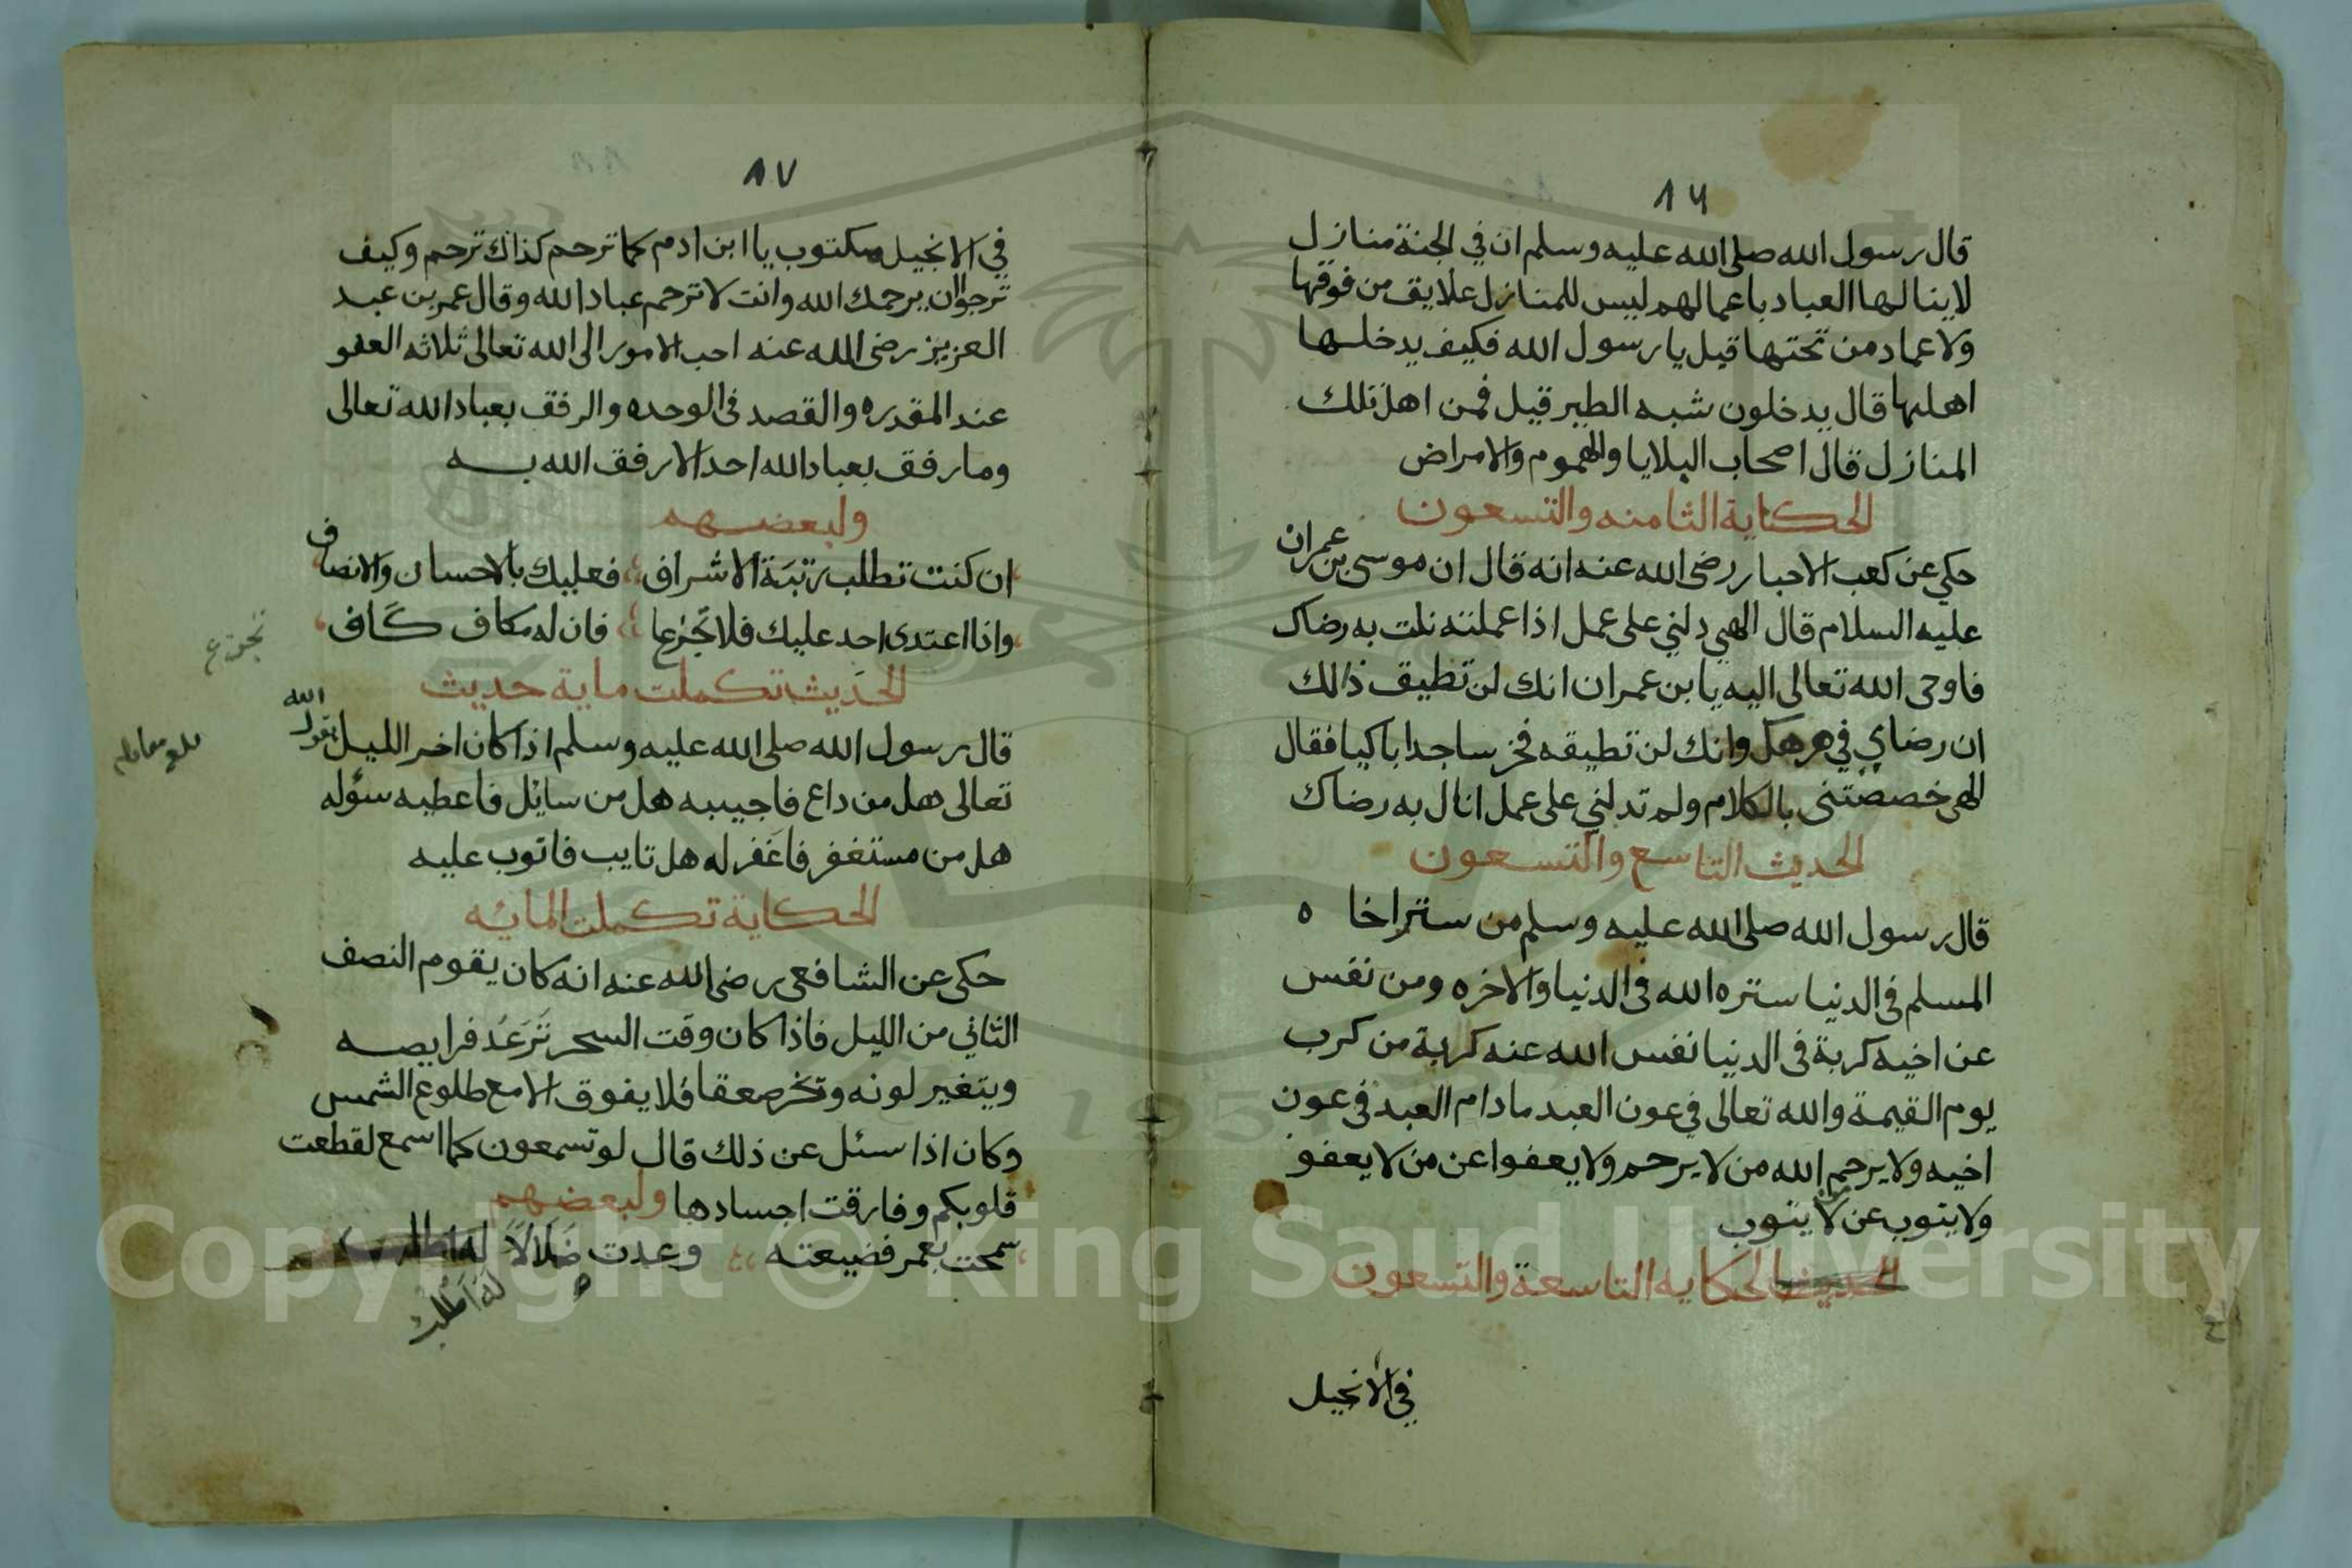 ٨٦
قال رسول الله صلى الله عليه وسلم ان في الجنة منازل
لا ينالها العباد باعمالهم ليس للمنازل علايق من فوقها
ولا عماد من تحتها قيل يا رسول الله فكيف يدخلها
اهلها قال يدخلون شبه الطير قيل فمن اهل تلك
المنازل قال اصحاب البلايا والهموم والامراض
الحكاية الثامنه والتسعون
حكي عن كعب الاحبار رضى الله عنه انه قال ان موسى بن عمران
عليه السلام قال الهي دلني على عمل اذا عملته نلت به رضاك
فاوحى الله تعالى اليه يا بن عمران انك لن تطيق ذالك
ان رضاي في وانك لن تطيقه فخر ساجدا باكيا فقال
الهى خصصتنى بالكلام ولم تدلني على عمل انال به رضاك
الحديث التاسع والتسعون
قال رسول الله صلى الله عليه وسلم من ستر اخاه
المسلم فى الدنيا ستره الله فى الدنيا والاخره ومن نفس
عن اخيه كربة فى الدنيا نفس الله عنه كربة من كرب
يوم القيمة والله تعالى في عون العبد مادام العبد في عون
اخيه ولا يرحم الله من لا يرحم ولا يعفوا عن من لا يعفو
ولا يتوب عن من لا يتوب
الحديث الحكايه التاسعة والتسعون
في الانجيل
٨٧
في الانجيل مكتوب يا ابن ادم كما ترحم كذاك ترحم وكيف
ترجوا ان يرحمك الله وانت لا ترحم عباد الله وقال عمر بن عبد
العزيز رضى الله عنه احب الامور الى الله تعالى ثلاثه العفو
عند المقدره والقصد فى الوحده والرفق بعباد الله تعالى
وما رفق بعباد الله احد الا رفق الله به
ولبعضهم
ان كنت تطلب رتبة الاشراف فعليك بالاحسان والانصاف
واذا اعتدى احد عليك فلا تجزعا فان له مكاف كاف
تجزع
الحديث تكملت ماية حديث
قال رسول الله صلى الله عليه وسلم اذا كان اخر الليل يقول الله
تعالى هل من داع فاجيبه هل من سايل فاعطيه سؤله
هل من مستغفر فاغفر له هل تايب فاتوب عليه
الحكاية تكملت المايه
حكى عن الشافعى رضى الله عنه انه كان يقوم النصف
الثاني من الليل فاذا كان وقت السحر ترعد فرايصه
ويتغير لونه وتخر صعقا فلا يفوق الا مع طلوع الشمس
وكان اذا سئل عن ذلك قال لو تسمعون كما اسمع لقطعت
قلوبكم وفارقت اجسادها ولبعضهم
سمحت بعمر فضيعته وعدت ضلالا له
له اطلب
Copyright © King Saud University
1957